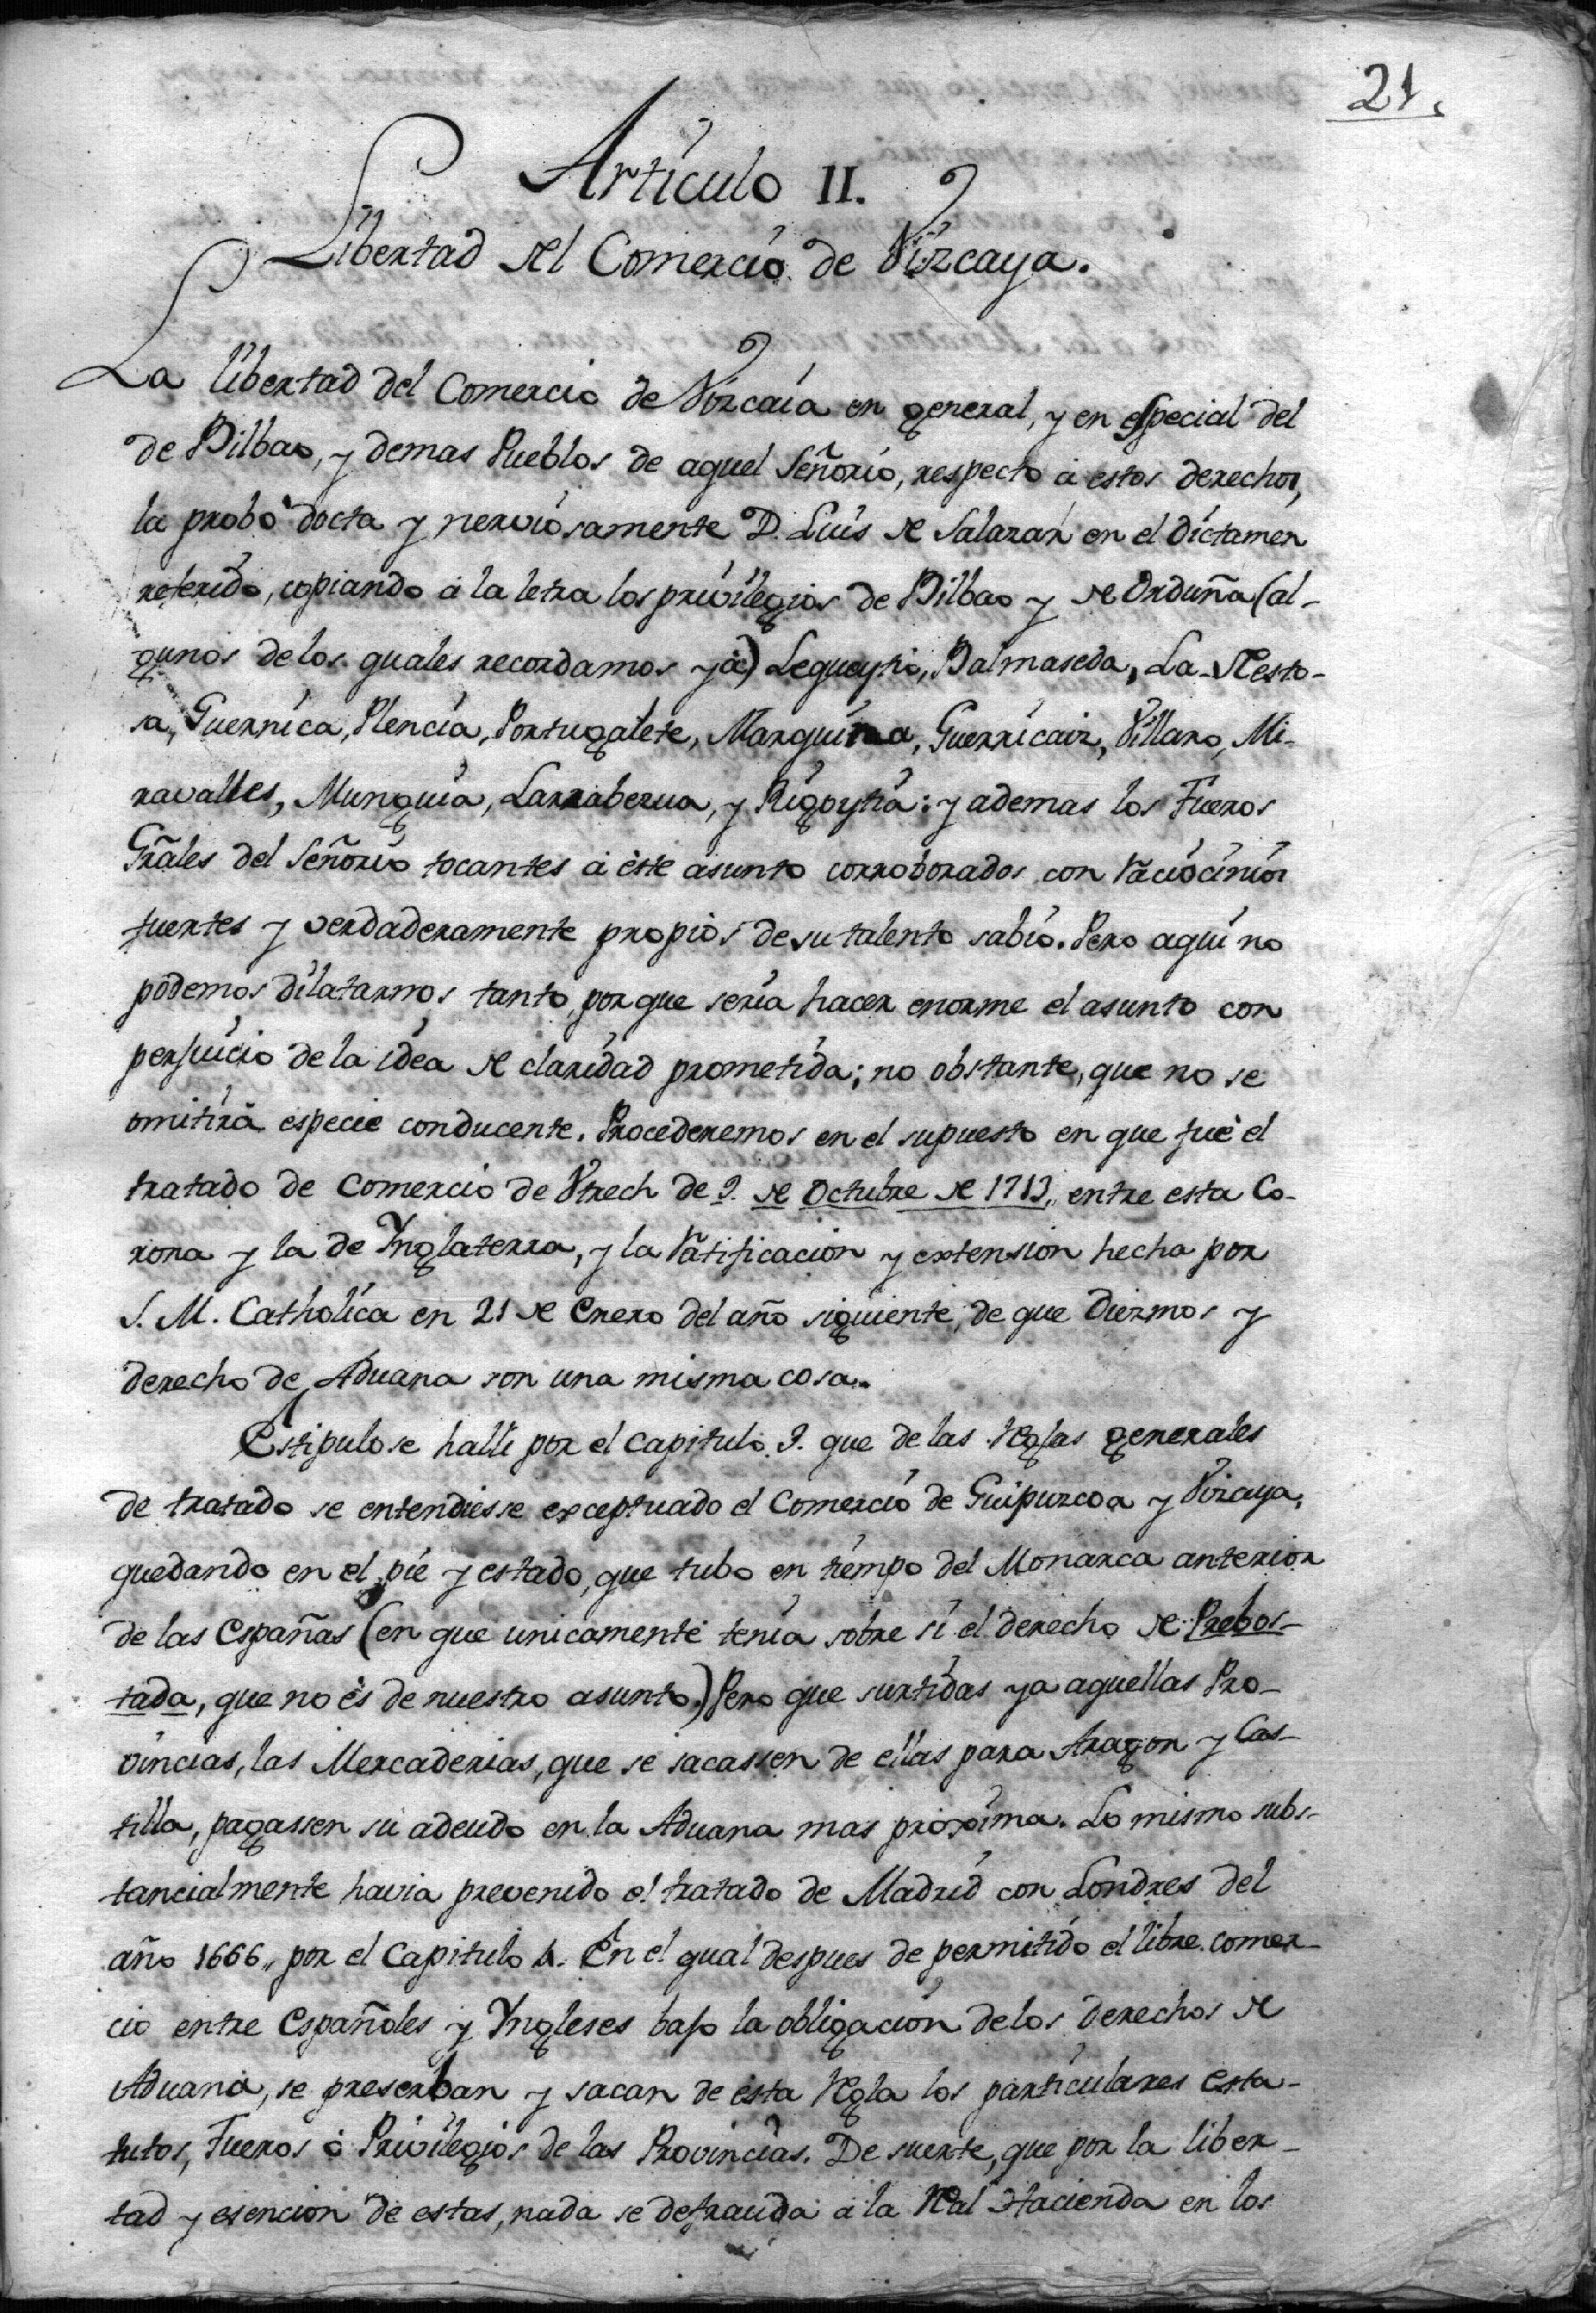 21.
Artículo II.
Libertad del Comercio de Vizcaya.
La libertad del Comercio de Vizcaía en general, y en especial del
de Bilbao, y demas Pueblos de aquel Señorío, respecto à estos derechos,
la probò docta y nerviosamente D. Luis de Salazar en el dictamen
referido, copiando à la letra los privilegios de Bilbao y de Orduña (al-
gunos de los quales recordamos yà) Lequeytio, Balmaseda, La-Resto-
sa, Guernica, Plencia, Portugalete, Marquina, Guerricaiz, Villaro, Mi-
ravalles, Munguia, Larrabezua, y Rigoytia: y ademas los Fueros
Grãles del Señorío tocantes à èste asunto corroborados con raciocinios
fuertes y verdaderamente propios de su talento sabio. Pero aqui no
podemos dilatarnos tanto, porque sería hacer enorme el asunto con
perjuicio de la idea de claridad prometida; no obstante, que no se
omitirà especie conducente. Procederemos en el supuesto en que fuè el
tratado de Comercio de Vtrech de 9. de Octubre de 1713,, entre esta Co-
rona y la de Ynglaterra, y la ratificacion y extension hecha por
S. M. Catholica en 21 de Enero del año siguiente, de que Diezmos y
derecho de Aduana son una misma cosa.
Estipulose halli por el Capitulo 9. que de las reglas generales
de tratado se entendiesse exceptuado el Comercio de Guipuzcoa y Vizcaya,
quedando en el pie y estado, que tubo en tiempo del Monarca anterior
de las Españas (en que unicamente tenía sobre sí el derecho de Prebos-
tada, que no ès de nuestro asunto.) Pero que surtidas ya aquellas Pro-
vincias, las Mercaderias, que se sacassen de ellas para Aragon y Cas-
tilla, pagassen su adeudo en la Aduana mas proxima. Lo mismo subs-
tancialmente havia prevenido el tratado de Madrid con Londres del
año 1666,, por el Capitulo 4. En el qual despues de permitido el libre comer-
cio entre Españoles y Yngleses bajo la obligacion de los derechos de
Aduana, se preserban y sacan de esta regla los particulares esta-
tutos, Fueros ò Privilegios de las Provincias. De suerte, que por la liber-
tad y esencion de estas, nada se defrauda à la Real Hacienda en los